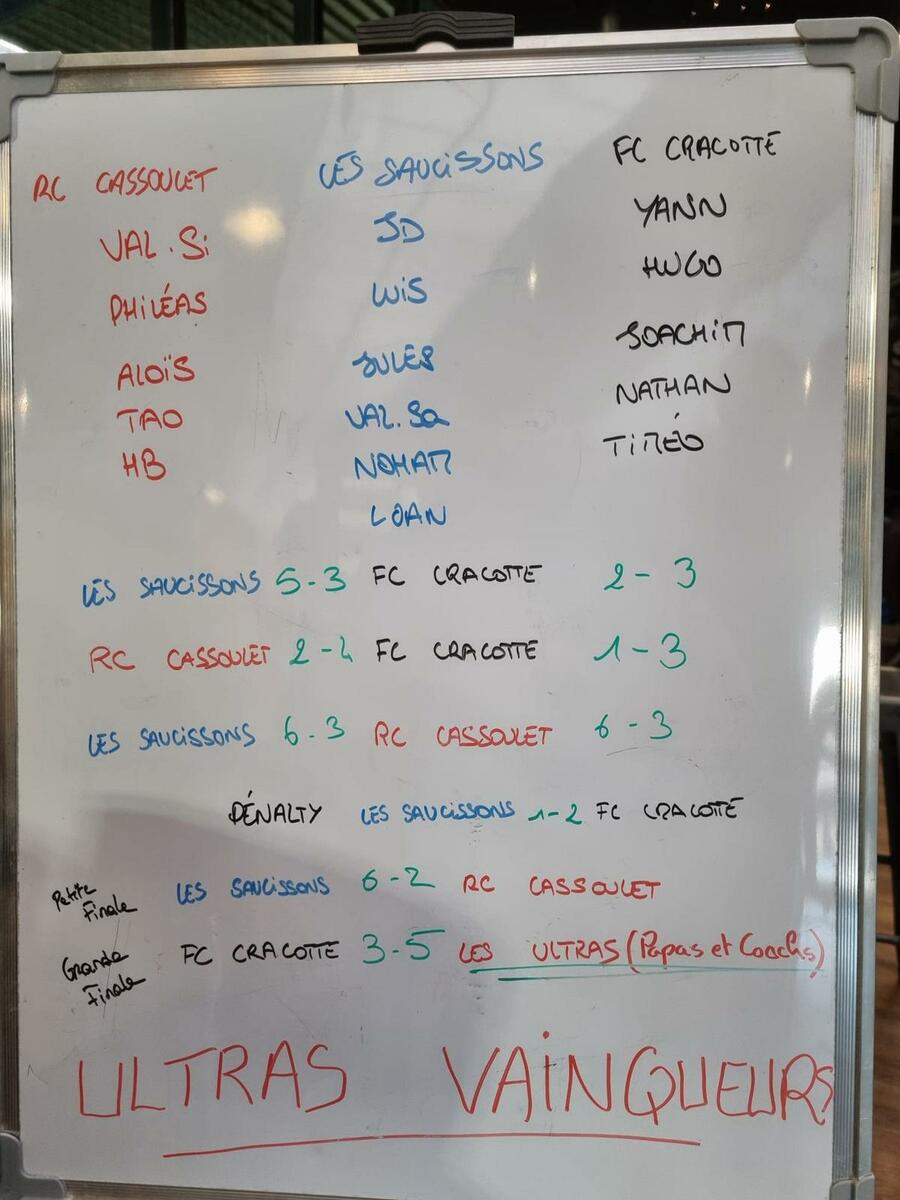 RC CASSOULET
VAL.Si
PHILÉAS
ALOÏS
TAO
HB
LES SAUCISSONS
JD
WiS
JULES
VAL.Sa
NOHAM
LOAN
FC CRACOTTE
YANN
HUGO
JOACHIM
NATHAN
TIMÉO
LES SAUCISSONS 5-3 FC CRACOTTE 2-3
RC CASSOULET 2-4 FC CRACOTTE 1-3
LES SAUCISSONS 6-3 RC CASSOULET 6-3
PÉNALTY LES SAUCISSONS 1-2 FC CRACOTTE
Petite Finale LES SAUCISSONS 6-2 RC CASSOULET
Grande Finale FC CRACOTTE 3-5 LES ULTRAS (Papas et Coachs)
ULTRAS VAINQUEURS